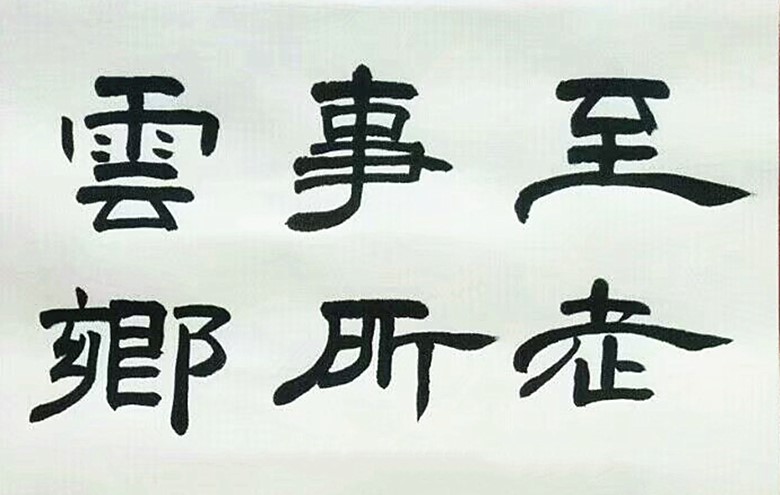 至老
事所
雲鄉